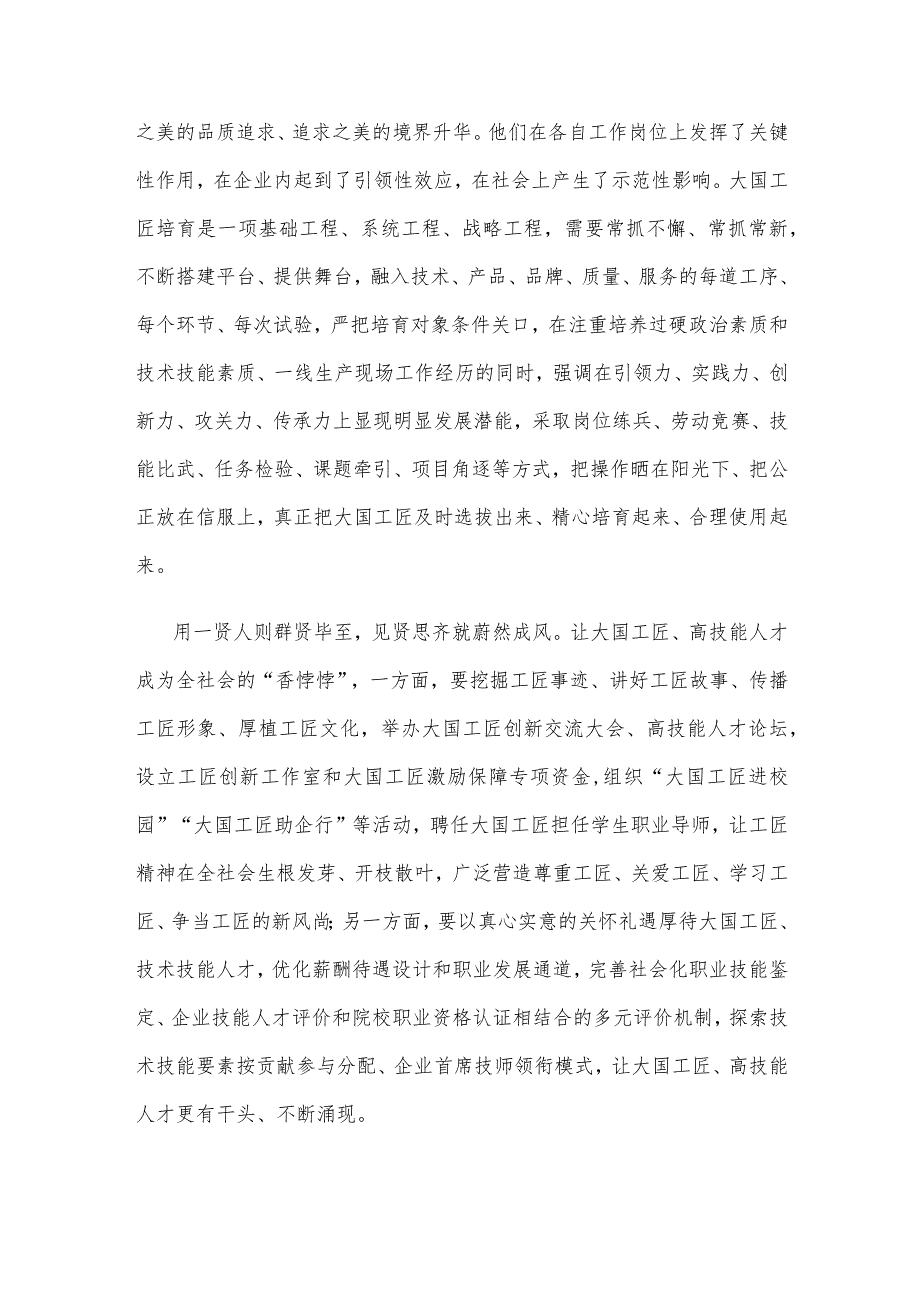 之美的品质追求、追求之美的境界升华。他们在各自工作岗位上发挥了关键
性作用，在企业内起到了引领性效应，在社会上产生了示范性影响。大国工
匠培育是一项基础工程、系统工程、战略工程，需要常抓不懈、常抓常新，
不断搭建平台、提供舞台，融入技术、产品、品牌、质量、服务的每道工序、
每个环节、每次试验，严把培育对象条件关口，在注重培养过硬政治素质和
技术技能素质、一线生产现场工作经历的同时，强调在引领力、实践力、创
新力、攻关力、传承力上显现明显发展潜能，采取岗位练兵、劳动竞赛、技
能比武、任务检验、课题牵引、项目角逐等方式，把操作晒在阳光下、把公
正放在信服上，真正把大国工匠及时选拔出来、精心培育起来、合理使用起
来。
用一贤人则群贤毕至，见贤思齐就蔚然成风。让大国工匠、高技能人才
成为全社会的“香悖悖”，一方面，要挖掘工匠事迹、讲好工匠故事、传播
工匠形象、厚植工匠文化，举办大国工匠创新交流大会、高技能人才论坛，
设立工匠创新工作室和大国工匠激励保障专项资金,组织“大国工匠进校
园”“大国工匠助企行”等活动，聘任大国工匠担任学生职业导师，让工匠
精神在全社会生根发芽、开枝散叶，广泛营造尊重工匠、关爱工匠、学习工
匠、争当工匠的新风尚；另一方面，要以真心实意的关怀礼遇厚待大国工匠、
技术技能人才，优化薪酬待遇设计和职业发展通道，完善社会化职业技能鉴
定、企业技能人才评价和院校职业资格认证相结合的多元评价机制，探索技
术技能要素按贡献参与分配、企业首席技师领衔模式，让大国工匠、高技能
人才更有干头、不断涌现。